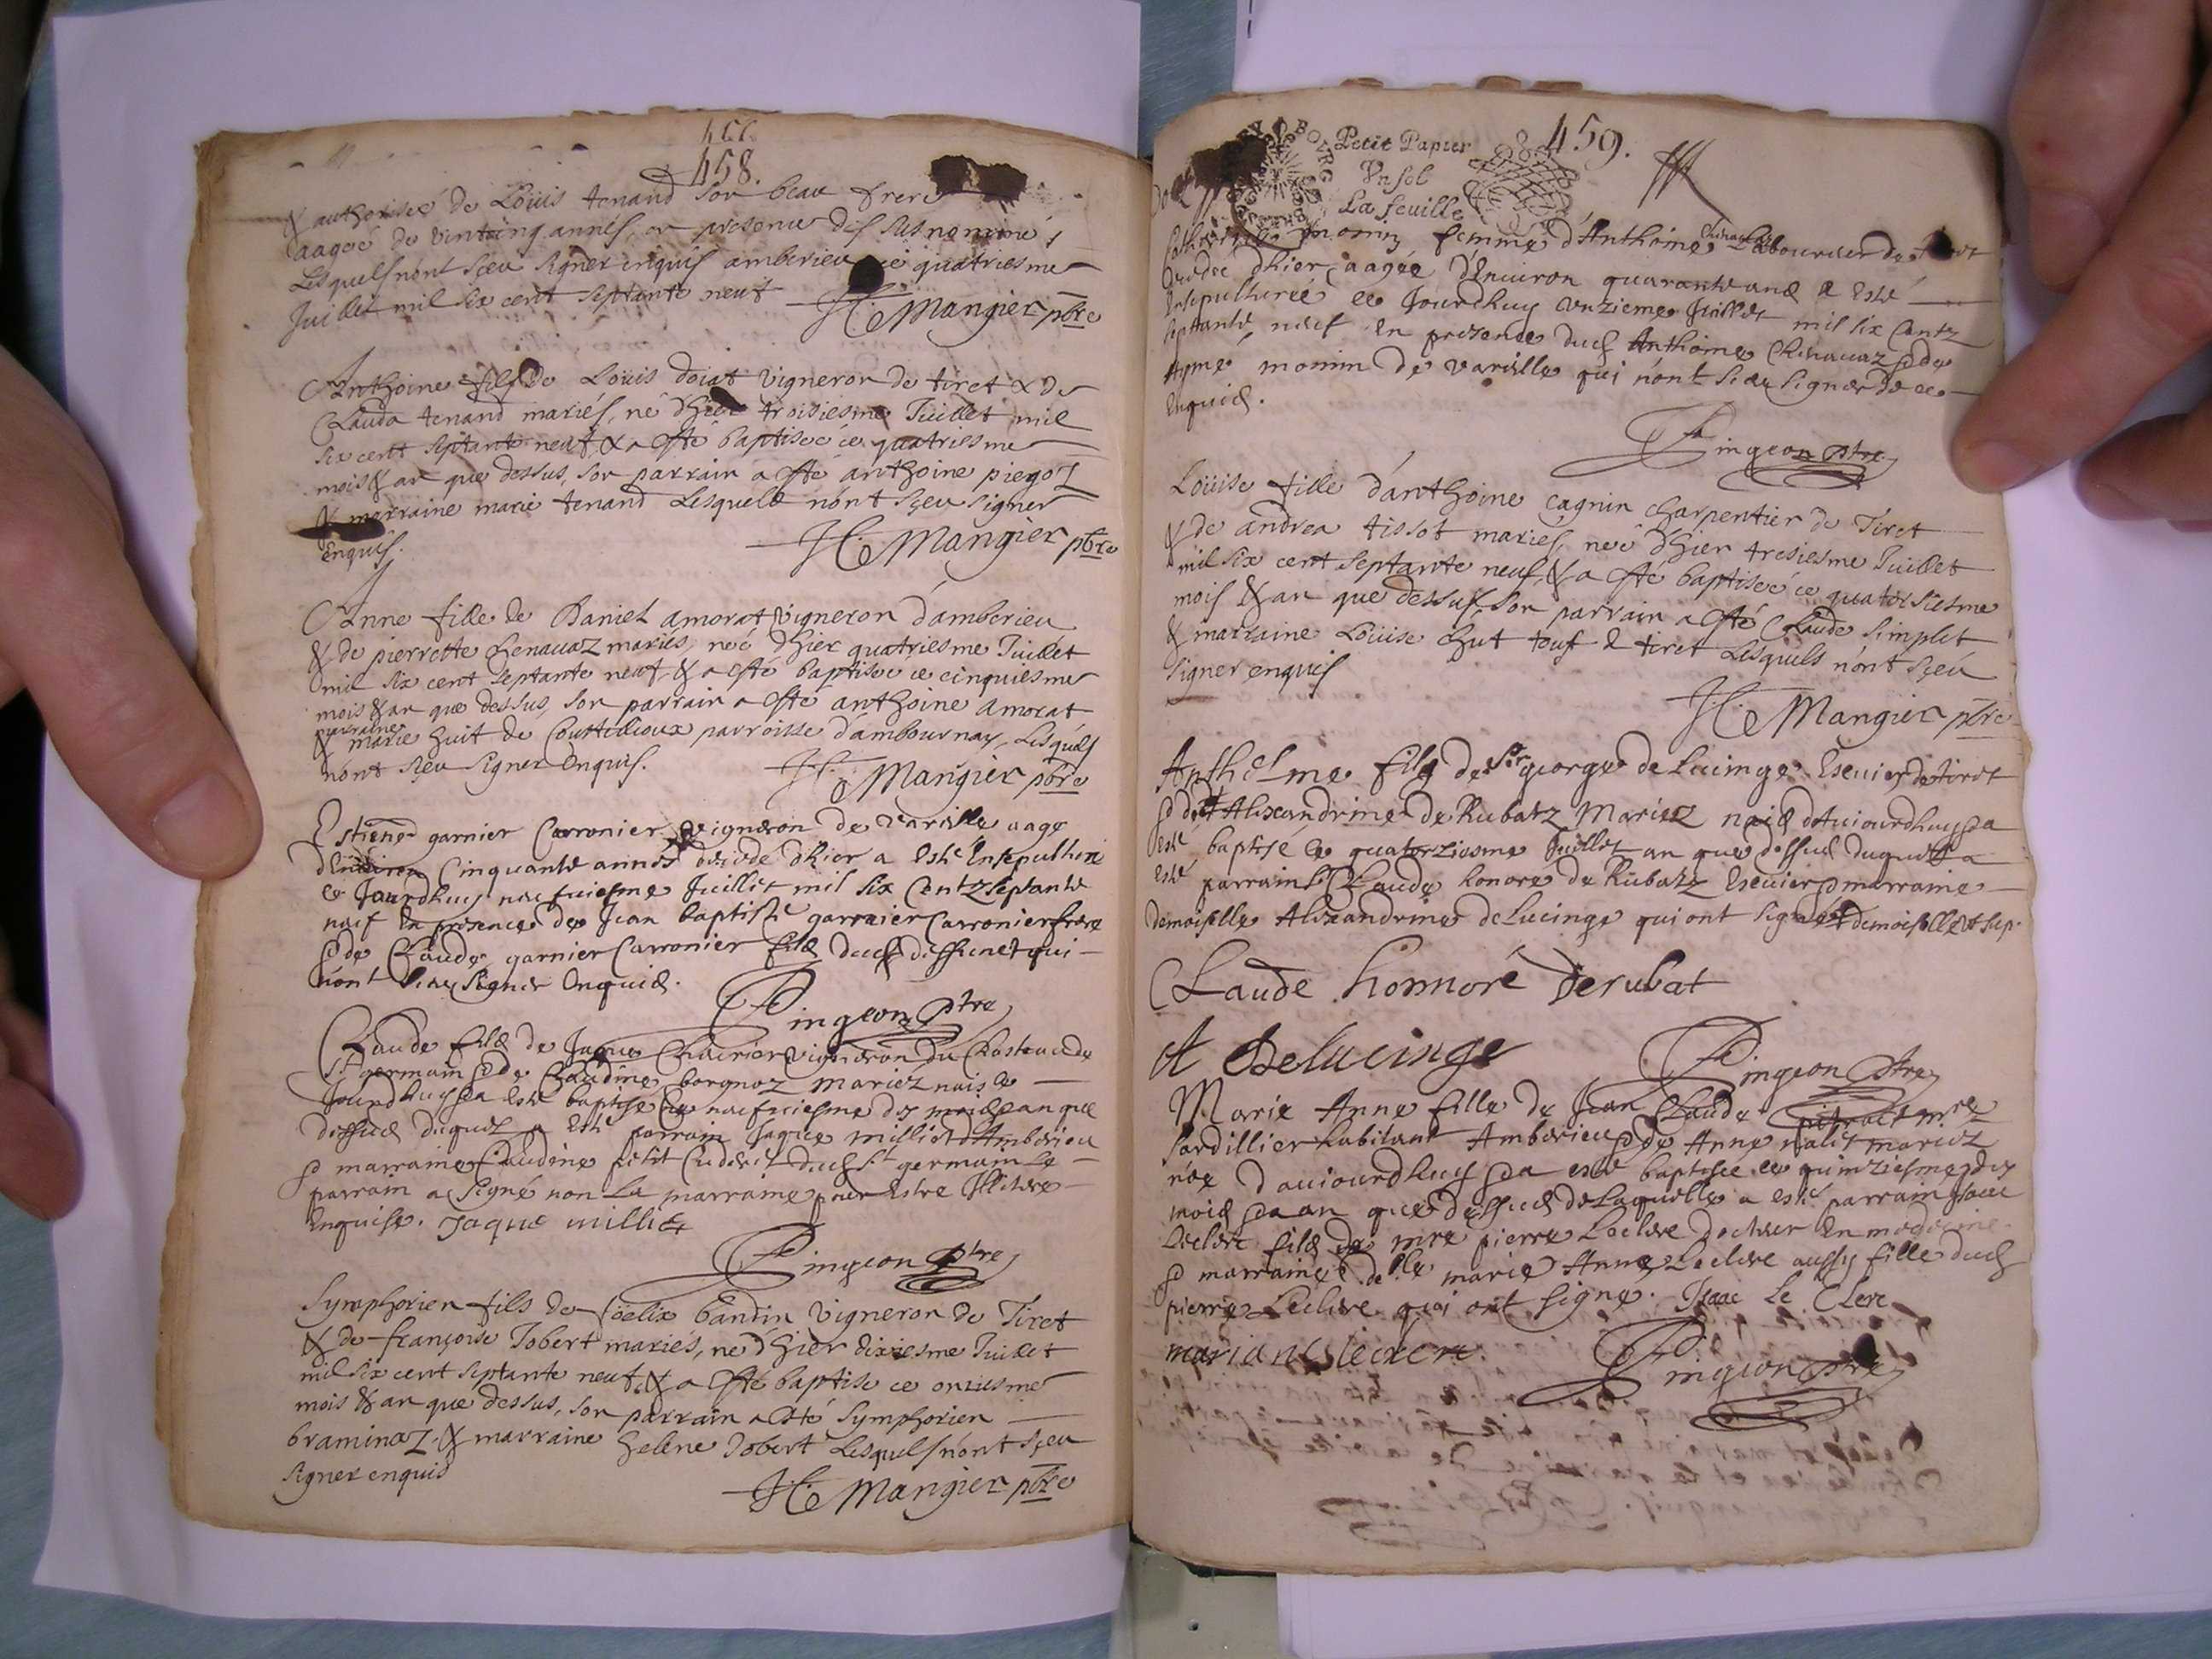 458.
& authorisée de Loüis tenand son beau frere
aagée de vintcinq années, en presence des susnommés
Lesquels n'ont sçeu signer enquis amberieu ce quatriesme
Juillet mil six cent septante neuf H. Mangier pbre
Anthoine fils de Loüis doiat vigneron de tiret & de
Clauda tenand mariés, né d'hier troisiesme Juillet mil
six cent septante neuf, & a esté baptisée ce quatriesme
mois & an que dessus, son parrain a esté anthoine piegoz
& marraine marie tenand Lesquels n'ont sçeu signer
Enquis. H. Mangier pbre
Anne fille de Daniel amorat vigneron d'amberieu
& de pierrette chenavaz mariés, neé d'hier quatriesme Juillet
mil six cent septante neuf, & a esté baptisée ce cinquiesme
mois & an que dessus, son parrain a esté anthoine amorat
marraine
& marie huit de Couttelieux parroisse d'ambournay, Lesquels
n'ont sçeu signer Enquis. H. Mangier pbre
Estiene garnier Carronier vigneron de vareille aage
d'Environ Cinquante années décédé d'hier a esté Ensepulturé
ce Jourdhuy neufuiesme Juillet mil six Centz septante
neuf En presence de Jean baptiste garnier Carronier frere
& de Claude garnier Carronier fils dud deffunct qui
n'ont sceu signer Enquis.
Pingeon ptre
Claude fils de Jaque Charrier vigneron du Chasteau de
St germain & de Claudine borgnoz mariez nais ce
Jourdhuy & a esté baptisé ce neufuiesme des mois & an que
dessus duquel a esté parrain Jaque milliet d'Amberieu
& marraine Claudine petit dud St germain Le
parrain a signé non La marraine pour estre Illitere
Enquise. Jaque milliet
Pingeon ptre
Symphorien fils de foëlix bandin vigneron de Tiret
& de françoise Jobert mariés, né d'hier dixiesme Juillet
mil six cent septante neuf, & a esté baptise ce onziesme
mois & an que dessus, son parrain a esté Symphorien
braminaz & marraine helene Jobert Lesquels n'ont sçeu
signer enquis
H. Mangier pbre
459.
Petit Papier
Vn sol
La feuille
monin femme d'Anthoine Chenavaz Laboureur de Tiret
d'hier aagée d'Enuiron quarante ans a esté
Ensepulturée ce Jourdhuy vnzieme Juillet mil six Centz
septante neuf en presence dud Anthoine Chenavaz & de
Aymé monin de vareille qui n'ont sceu signer de ce
Enquis.
Pingeon ptre
Loüise fille d'anthoine cagnin charpentier de Tiret
& de andrea tissot mariés, neé d'hier tresiesme Juillet
mil six cent septante neuf, & a esté baptiseé ce quatorsiesme
mois & an que dessus, son parrain a esté Claude simplet
& marraine Loüise chut touf de tiret Lesquels n'ont sçeu
signer enquis
H. Mangier pbre
Anthelme fils de Sr george de Lucinge Escuier de tiret
& de Alexandrine de Rubatz Mariez nais d'Auiourdhuy & a
esté baptisé ce quatorziesme Juillet an que dessus duquel a
esté parrain Claude honoré de Rubatz Escuier & marraine
demoiselle Alexandrine de Lucinge qui ont signé
Claude honnoré Derubat
A Delucinge
Pingeon ptre
Marie Anne fille de Jean Claude mre
Cordillier habitant Amberieu & de Anne mariez
née d'auiourdhuy & a esté baptisée ce quinziesme des
mois & an que dessus de Laquelle a esté parrain Isaac
Leclerc fils de mre pierre Leclere docteur En medecine
& marraine delle marie Anne Leclere aussy fille dud
pierre Leclere qui ont signe. Isaac Le Clerc
marianeslecler
Pingeon ptre